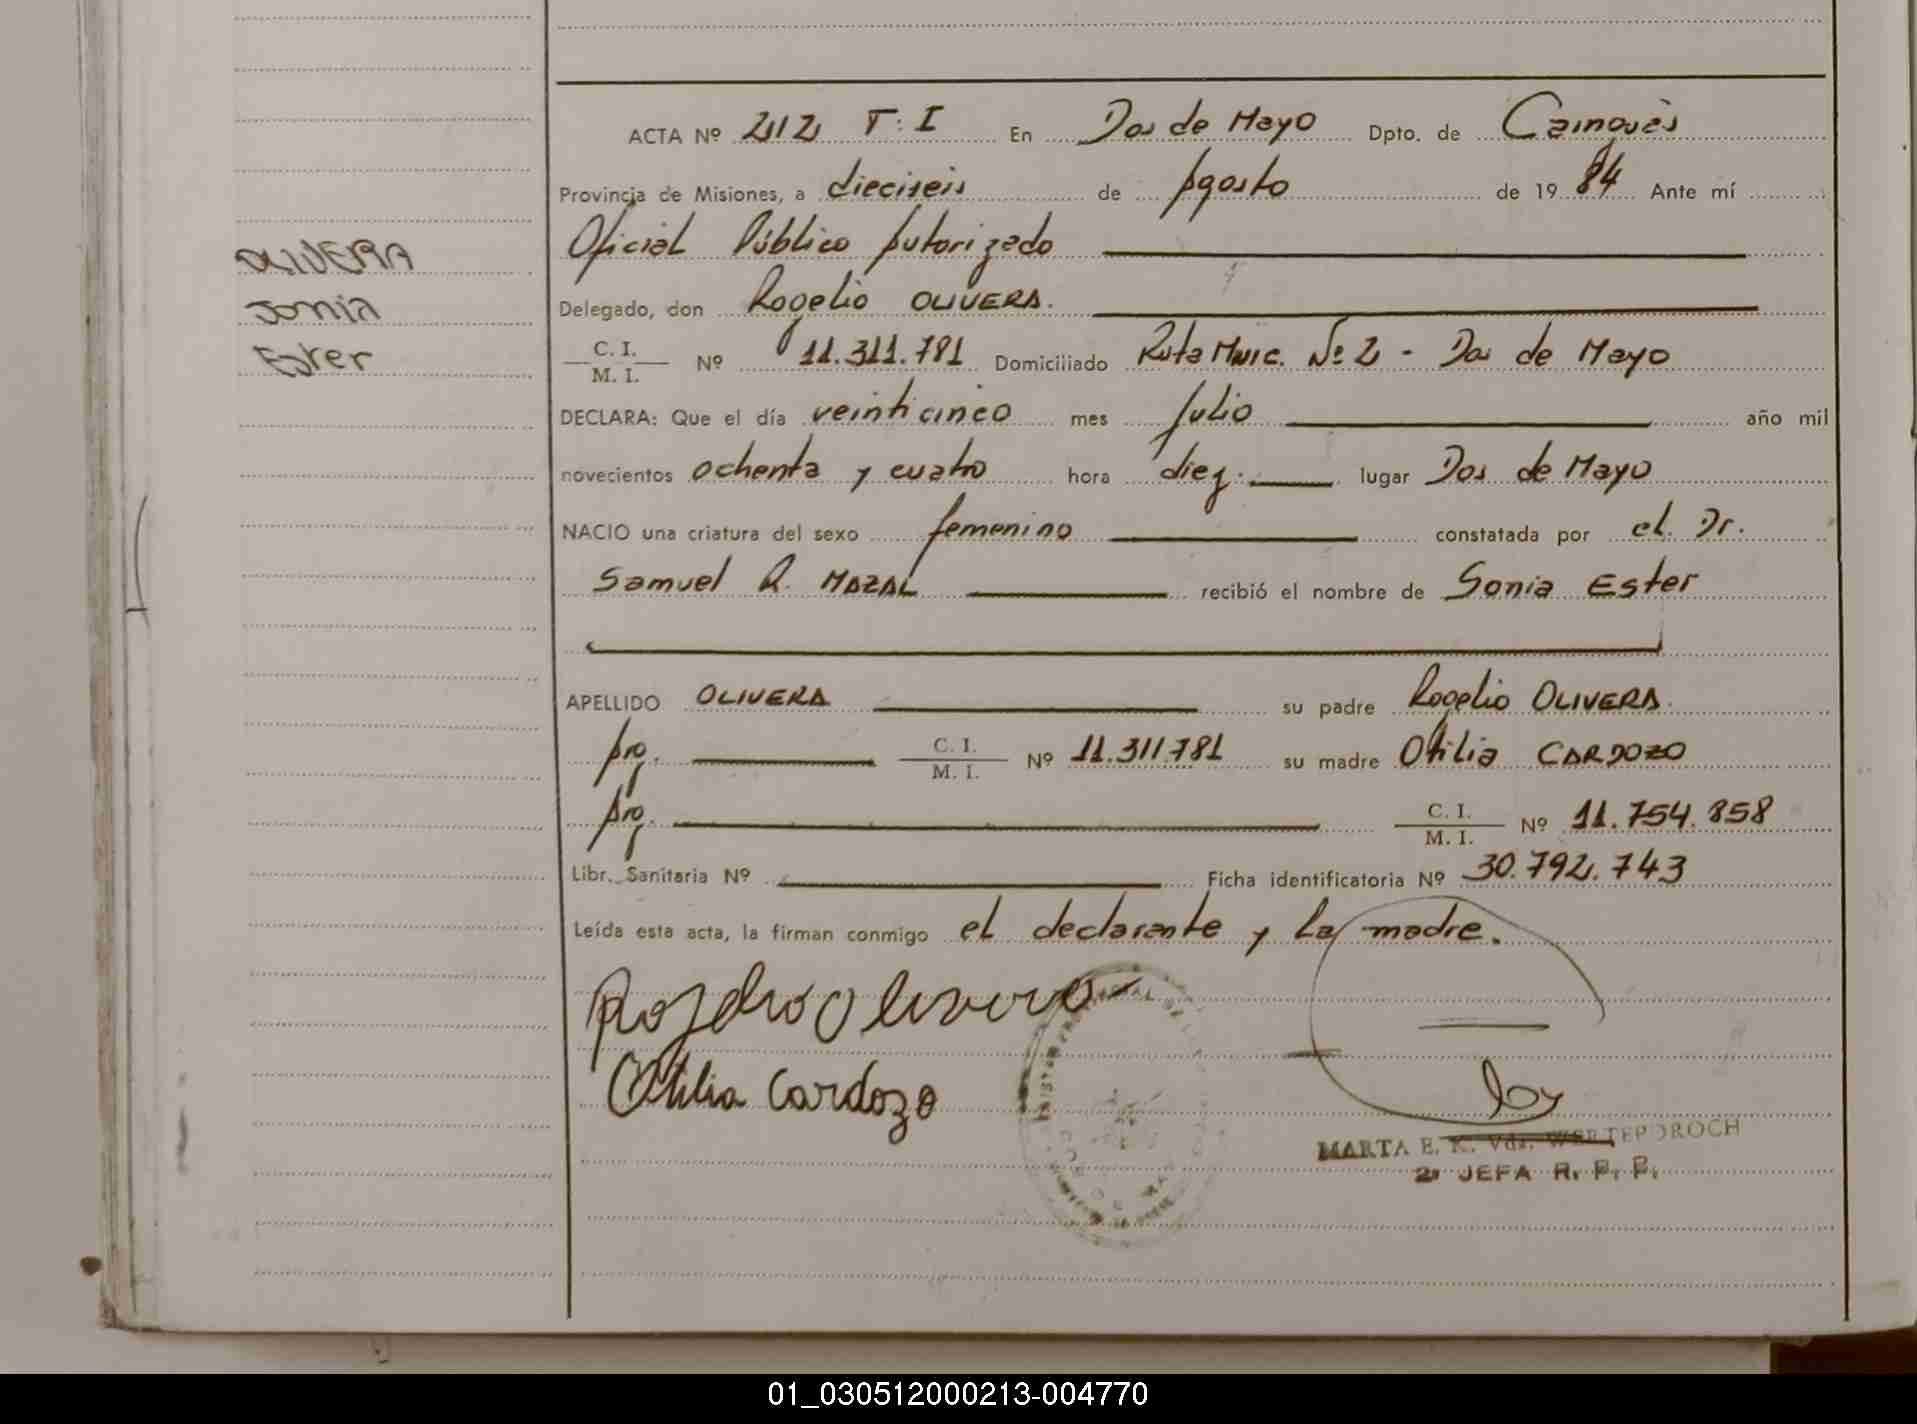 ACTA Nº 212 T: I En Dos de Mayo Dpto. de Cainguás
Provincia de Misiones, a dieciseis de Agosto de 1984 Ante mí
Oficial Público Autorizado
OLIVERA
Delegado, don Rogelio OLIVERA.
Sonia
C. I. / M. I. Nº 11.311.781 Domiciliado Ruta Munic. Nº 2 - Dos de Mayo
Ester
DECLARA: Que el día veinticinco mes Julio año mil
novecientos ochenta y cuatro hora diez. lugar Dos de Mayo
NACIO una criatura del sexo femenino constatada por el. Dr.
Samuel R. MAZAL recibió el nombre de Sonia Ester
APELLIDO OLIVERA su padre Rogelio OLIVERA.
prg. C. I. / M. I. Nº 11.311.781 su madre Otilia CARDOZO
prg. C. I. / M. I. Nº 11.754.858
Libr. Sanitaria Nº Ficha identificatoria Nº 30.792.743
Leída esta acta, la firman conmigo el declarante y la madre.
Rogelio Olivera
Otilia Cardozo
MARTA E. K. Vda.
2ª JEFA R. P. P.
01_030512000213-004770